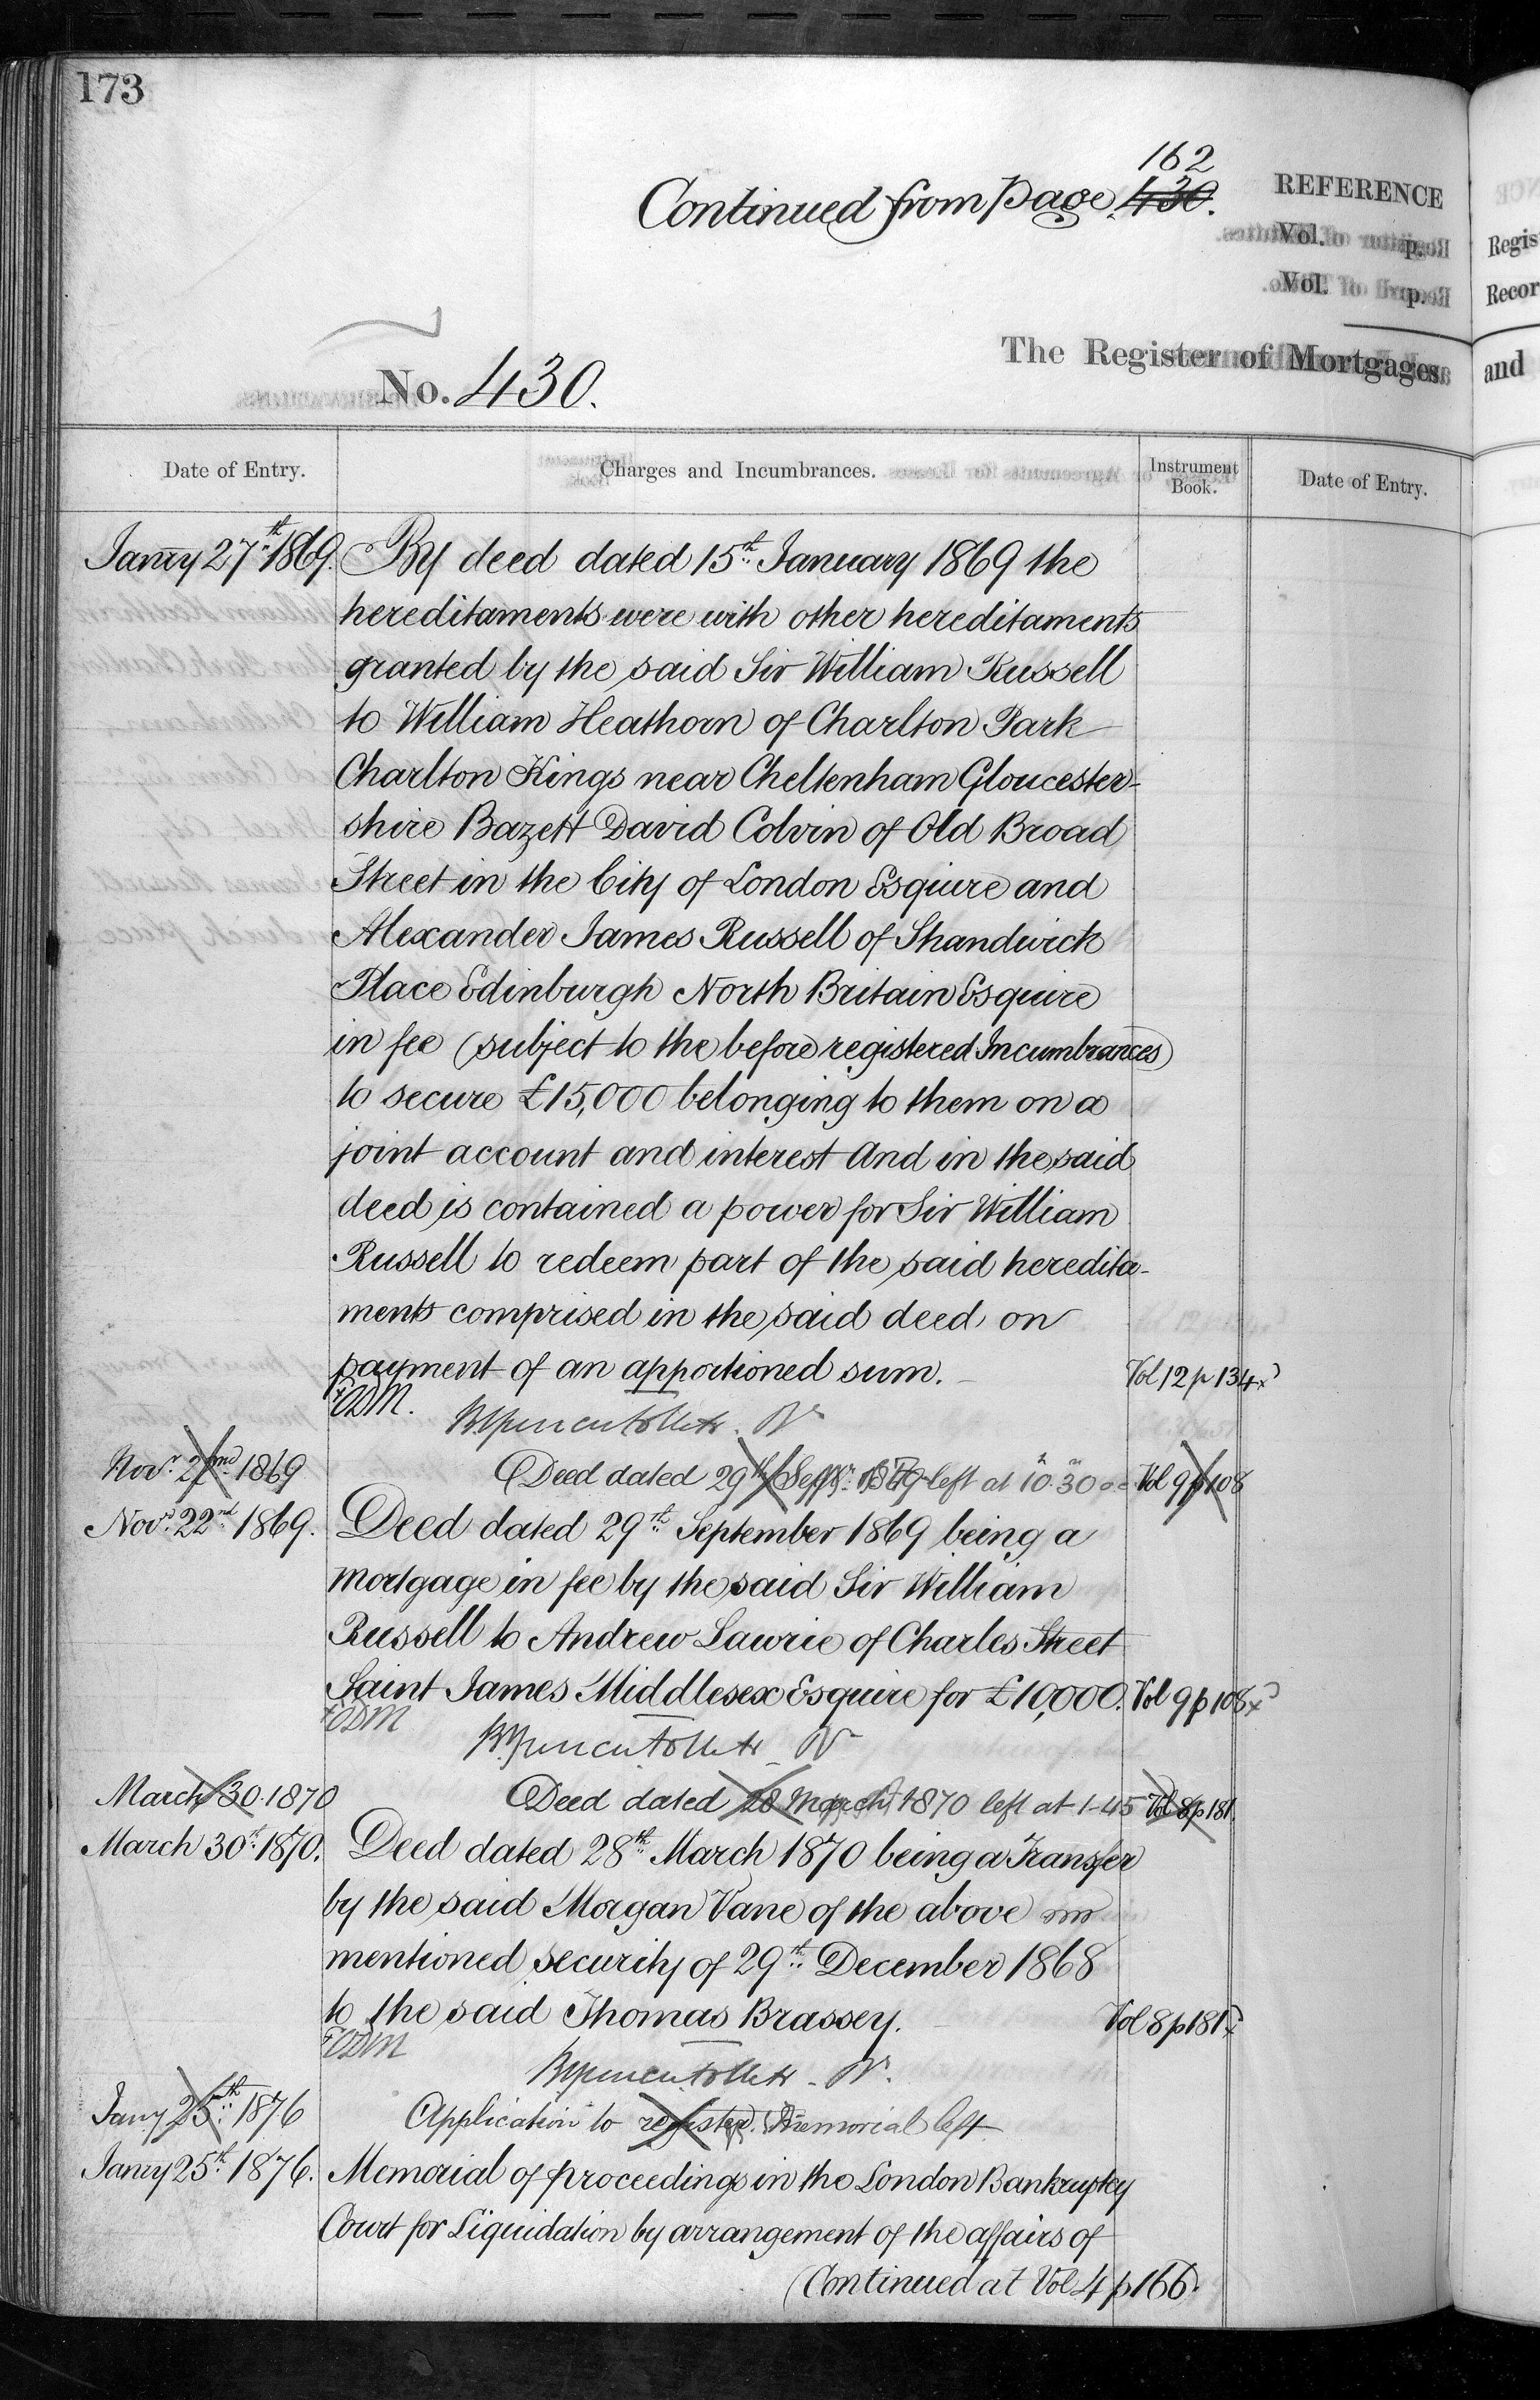 173
162
Continued from page 430.
REFERENCE
Vol. p.
Vol. p.
The Register of Mortgages
No. 430.
Date of Entry.
Charges and Incumbrances.
Instrument Book.
Date of Entry.
Janry 27th 1869. By deed dated 15th January 1869 the
hereditaments were with other hereditaments
granted by the said Sir William Russell
to William Heathorn of Charlton Park
Charlton Kings near Cheltenham Gloucester-
shire Bazett David Colvin of Old Broad
Street in the City of London Esquire and
Alexander James Russell of Shandwick
Place Edinburgh North Britain Esquire
in fee (subject to the before registered Incumbrances)
to secure £15,000 belonging to them on a
joint account and interest And in the said
deed is contained a power for Sir William
Russell to redeem part of the said heredita-
ments comprised in the said deed on
payment of an apportioned sum. Vol 12 p 134
Novr. 22nd 1869 Deed dated 29th Septr. 1869 left at 10.30 Vol 9 p 108
Novr. 22nd 1869. Deed dated 29th September 1869 being a
mortgage in fee by the said Sir William
Russell to Andrew Lawrie of Charles Street
Saint James Middlesex Esquire for £10,000. Vol 9 p 108
March 30. 1870 Deed dated 28 March 1870 left at 1-45 Vol 8 p 181.
March 30th 1870. Deed dated 28th March 1870 being a Transfer
by the said Morgan Vane of the above
mentioned security of 29th December 1868
to the said Thomas Brassey. Vol 8 p 181
Jany 25th 1876 Application to register Memorial left
Janry 25th 1876. Memorial of proceedings in the London Bankruptcy
Court for Liquidation by arrangement of the affairs of
(Continued at Vol 4 p 166.
Regis
Recor
and